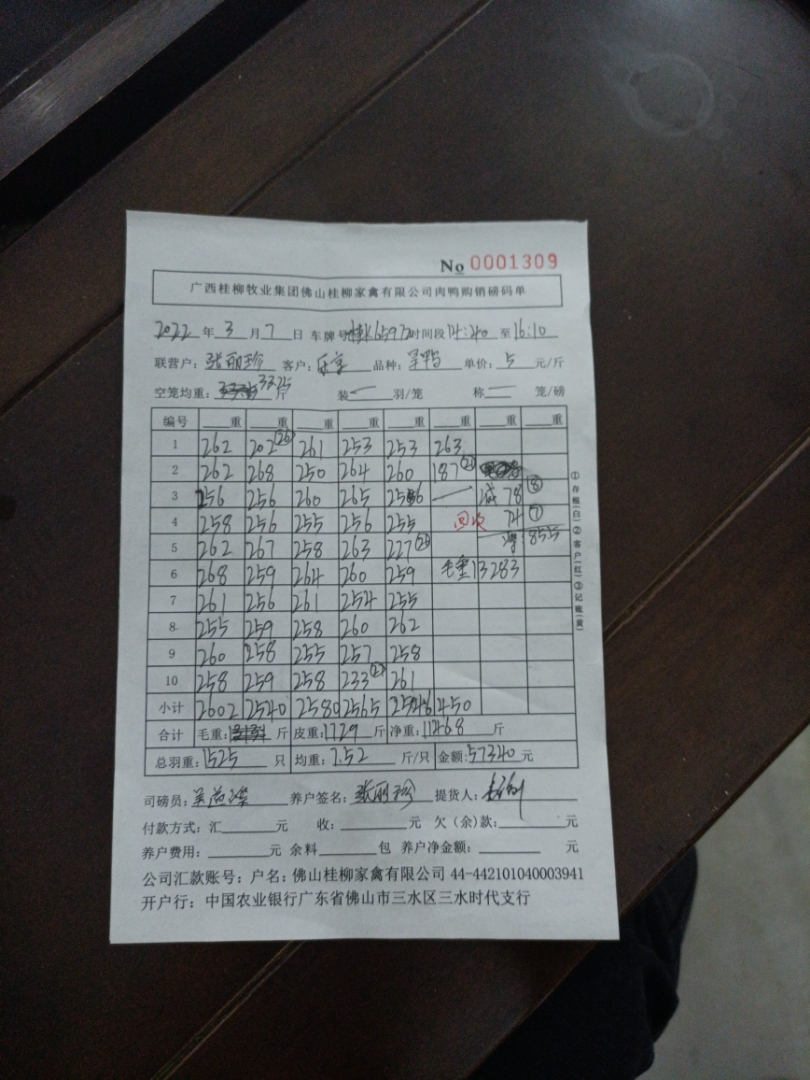 No 0001309
广西桂柳牧业集团佛山桂柳家禽有限公司肉鸭购销磅码单
2022 年 3 月 7 日 车牌号 时间段 14:20 至 16:10
联营户: 张丽珍 客户: 品种: 单价: 5 元/斤
空笼均重: 33.25 斤 装 一 羽/笼 称 一 笼/磅
编号 重 重 重 重 重 重 重 重
1 262 202 (20) 261 253 253 263
2 262 268 250 264 260 187
3 256 256 260 265 256 一 减 78 ⑧
4 258 256 255 256 255 回次 74 ⑦
5 262 267 258 263 227 净 855
6 268 259 264 260 259 毛重 13283
7 261 256 261 254 255
8 255 259 258 260 262
9 260 258 255 257 258
10 258 259 258 233 261
小计 2602 2540 2580 2565 2546 450
合计 毛重: 斤 皮重: 1729 斤 净重: 11468 斤
总羽重: 1525 只 均重: 7.52 斤/只 金额: 57340 元
司磅员: 养户签名: 张丽珍 提货人:
付款方式: 汇 元 收: 元 欠(余)款: 元
养户费用: 元 余料 包 养户净金额: 元
公司汇款账号: 户名: 佛山桂柳家禽有限公司 44-442101040003941
开户行: 中国农业银行广东省佛山市三水区三水时代支行
①存根(白)②客户(红)③记账(黄)